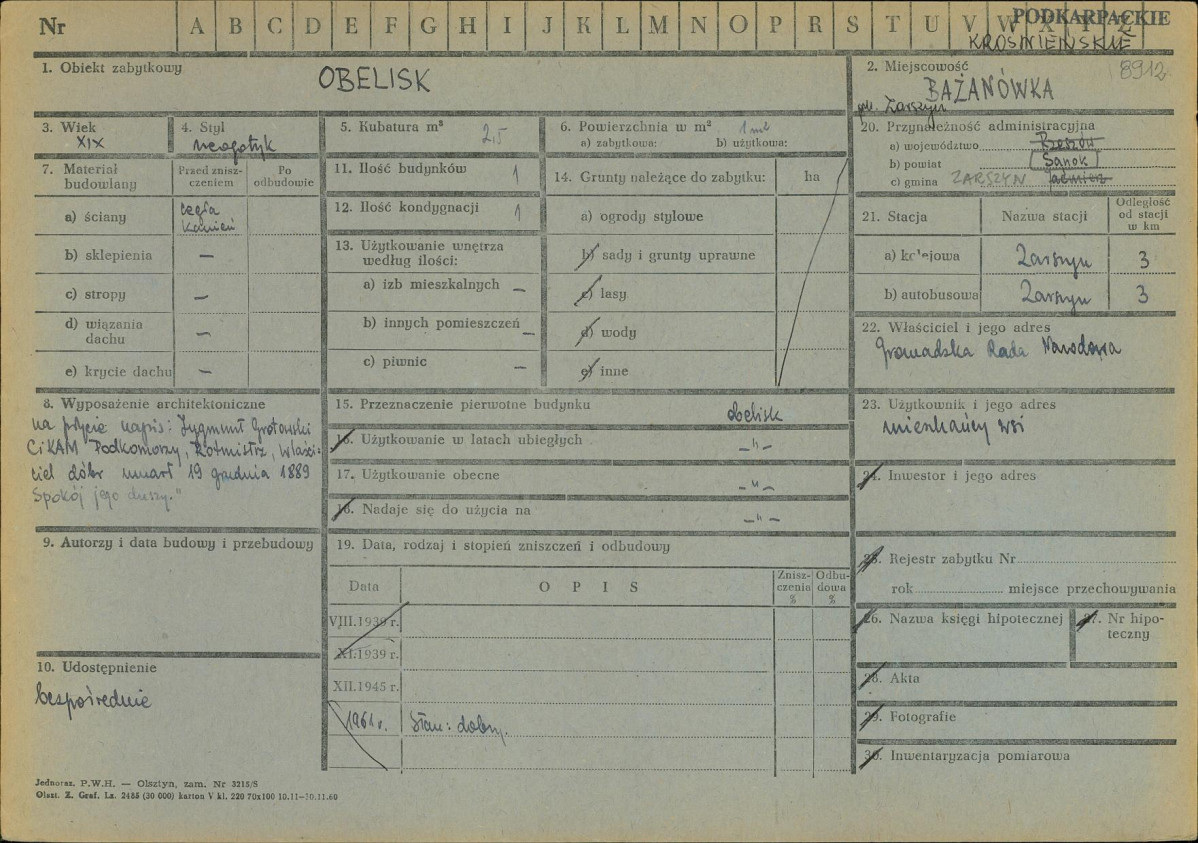 Nr A B C D E F G H I J K L M N O P R S T U V W X Y Z
PODKARPACKIE
KROŚNIEŃSKIE
1. Obiekt zabytkowy
OBELISK
2. Miejscowość
8912
BAŻANÓWKA
gm. Zarszyn
3. Wiek
XIX
4. Styl
neogotyk
5. Kubatura m³
2,5
6. Powierzchnia w m²
1 m²
a) zabytkowa: b) użytkowa:
20. Przynależność administracyjna
a) województwo Rzeszów
b) powiat Sanok
c) gmina ZARSZYN Jaćmierz
7. Materiał budowlany
Przed zniszczeniem
Po odbudowie
a) ściany
cegła
kamień
b) sklepienia —
c) stropy —
d) wiązania dachu —
e) krycie dachu —
11. Ilość budynków 1
12. Ilość kondygnacji 1
13. Użytkowanie wnętrza
według ilości:
a) izb mieszkalnych —
b) innych pomieszczeń —
c) piwnic —
14. Grunty należące do zabytku: ha
a) ogrody stylowe
b) sady i grunty uprawne
c) lasy
d) wody
e) inne
21. Stacja
Nazwa stacji
Odległość od stacji w km
a) kolejowa Zarszyn 3
b) autobusowa Zarszyn 3
22. Właściciel i jego adres
Gromadzka Rada Narodowa
8. Wyposażenie architektoniczne
na płycie napis: Zygmunt Grotowski
CiKAM Podkomorzy, Rotmistrz, właści-
ciel dóbr umarł 19 grudnia 1889
Spokój jego duszy."
15. Przeznaczenie pierwotne budynku obelisk
16. Użytkowanie w latach ubiegłych —"—
17. Użytkowanie obecne —"—
18. Nadaje się do użycia na —"—
23. Użytkownik i jego adres
mieszkańcy wsi
24. Inwestor i jego adres
9. Autorzy i data budowy i przebudowy
19. Data, rodzaj i stopień zniszczeń i odbudowy
Data
OPIS
Zniszczenia %
Odbudowa %
VIII.1939 r.
XI.1939 r.
XII.1945 r.
1961 r. Stan: dobry.
25. Rejestr zabytku Nr
rok miejsce przechowywania
26. Nazwa księgi hipotecznej
27. Nr hipoteczny
28. Akta
29. Fotografie
30. Inwentaryzacja pomiarowa
10. Udostępnienie
bezpośrednie
Jednoraz. P.W.H. — Olsztyn, zam. Nr 3215/S
Olszt. Z. Graf. Lz. 2485 (30 000) karton V kl. 220 70x100 10.11—10.11.60